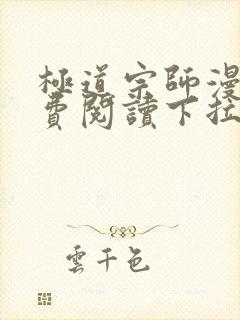 極道宗師漫
費閱讀下拉
雲千色